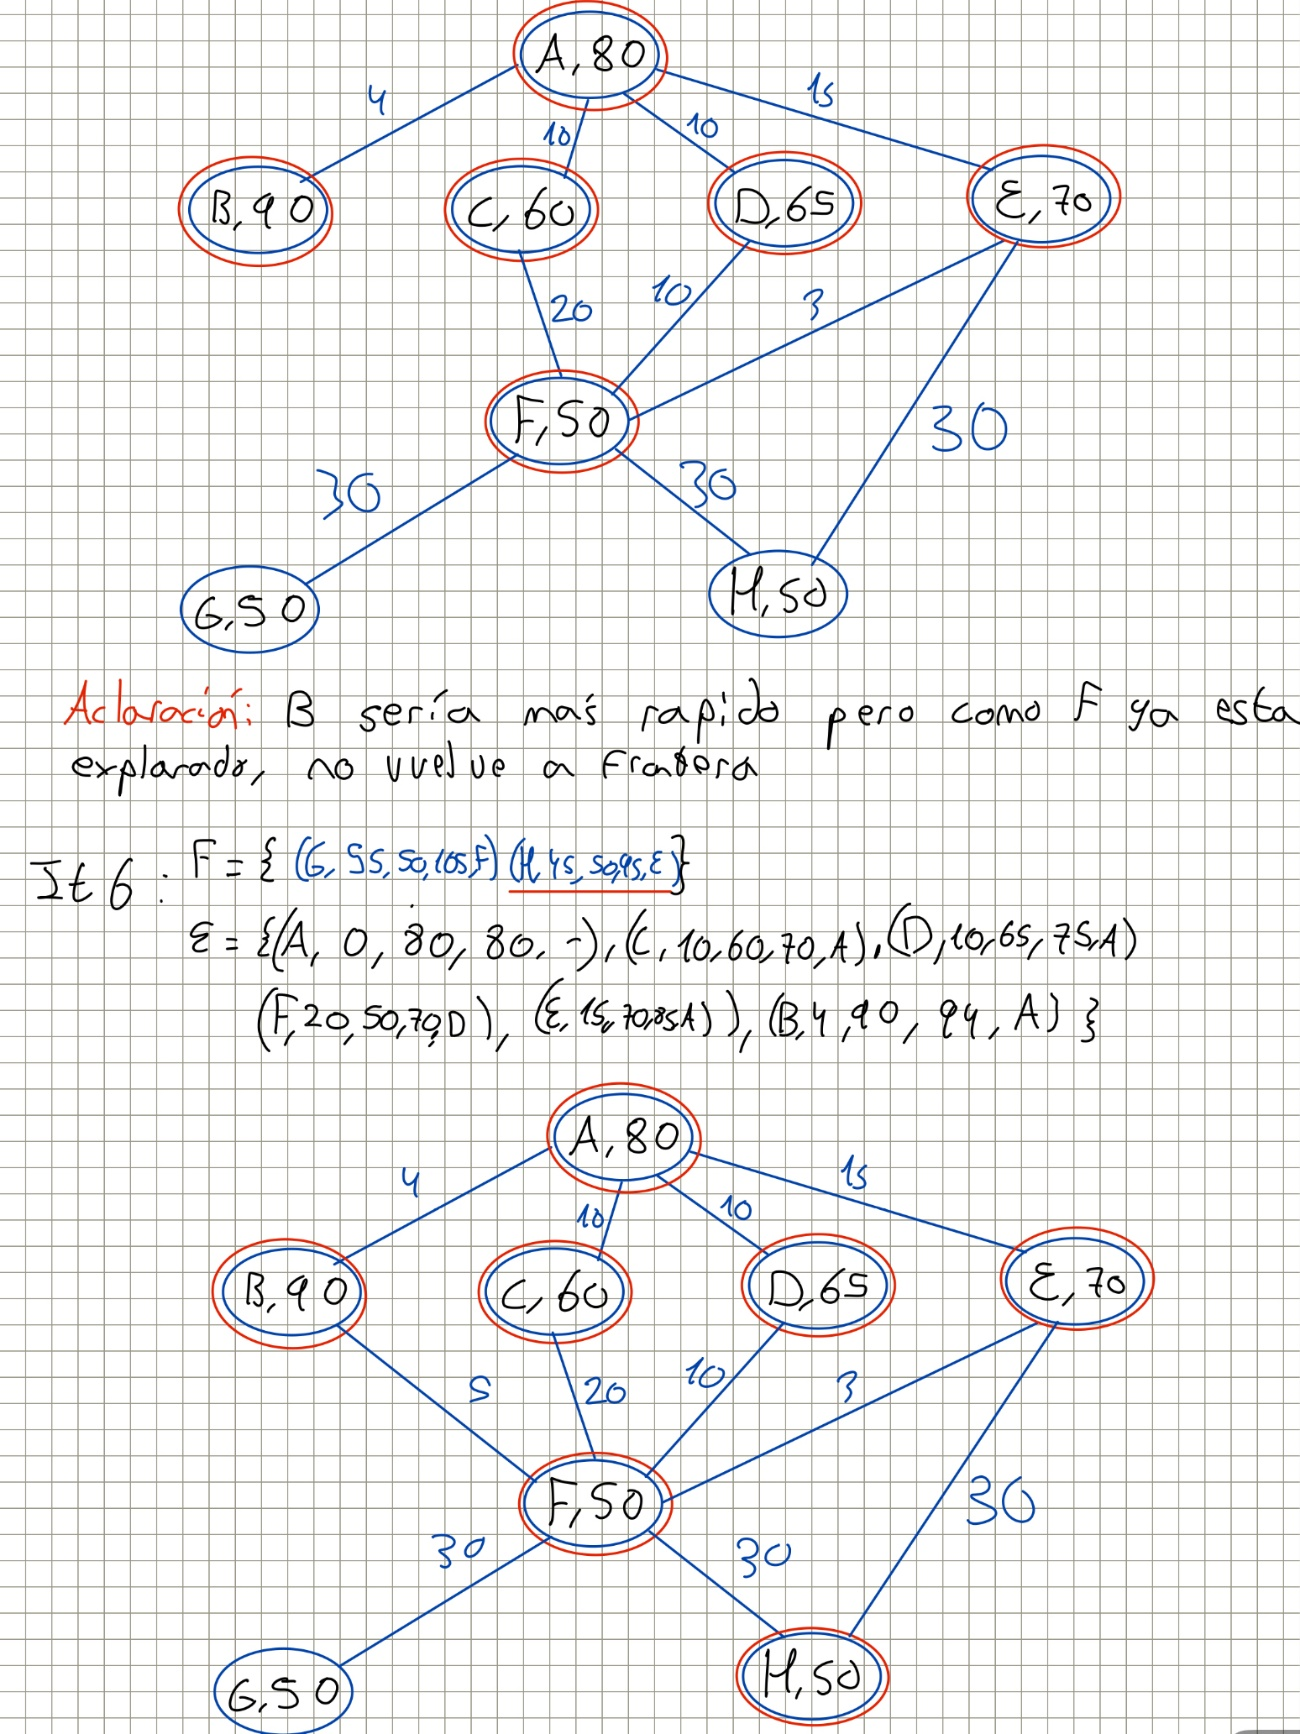 A, 80
4
10
10
15
B, 90
C, 60
D, 65
E, 70
20
10
3
30
F, 50
30
30
G, 50
H, 50
Aclaración: B sería más rapido pero como F ya esta
explorado, no vuelve a Frontera
It 6: F = { (G, 55, 50, 105, F) (H, 45, 50, 95, E) }
E = {(A, 0, 80, 80, -), (C, 10, 60, 70, A), (D, 10, 65, 75, A)
(F, 20, 50, 70, D), (E, 15, 70, 85, A)), (B, 4, 90, 94, A) }
A, 80
4
10
10
15
B, 90
C, 60
D, 65
E, 70
5
20
10
3
30
F, 50
30
30
G, 50
H, 50